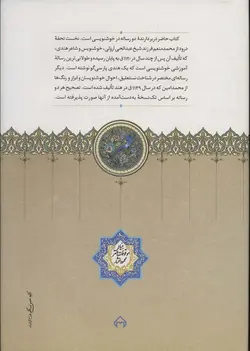 کتاب حاضر دربردارندهٔ دو رساله در خوشنویسی است. نخست تحفة
درود از محمدمنعم فرزند شیخ عبدالحی اَروَلی، خوشنویس و شاعر هندی،
که تألیف آن پس از چند سال در ۱۱۵۰ق به پایان رسید و طولانی‌ترین رسالهٔ
آموزشی خوشنویسی است که یک هندی پارسی‌گو نوشته است. دیگر
رساله‌ای مختصر در شناخت نستعلیق، احوال خوشنویسان و قرار و رنگ‌ها
از محمدامین که در سال ۱۱۴۹ق در هند تألیف شده است. تصحیح هر دو
رساله بر اساس تک‌نسخهٔ به‌دست‌آمده از آنها صورت پذیرفته است.